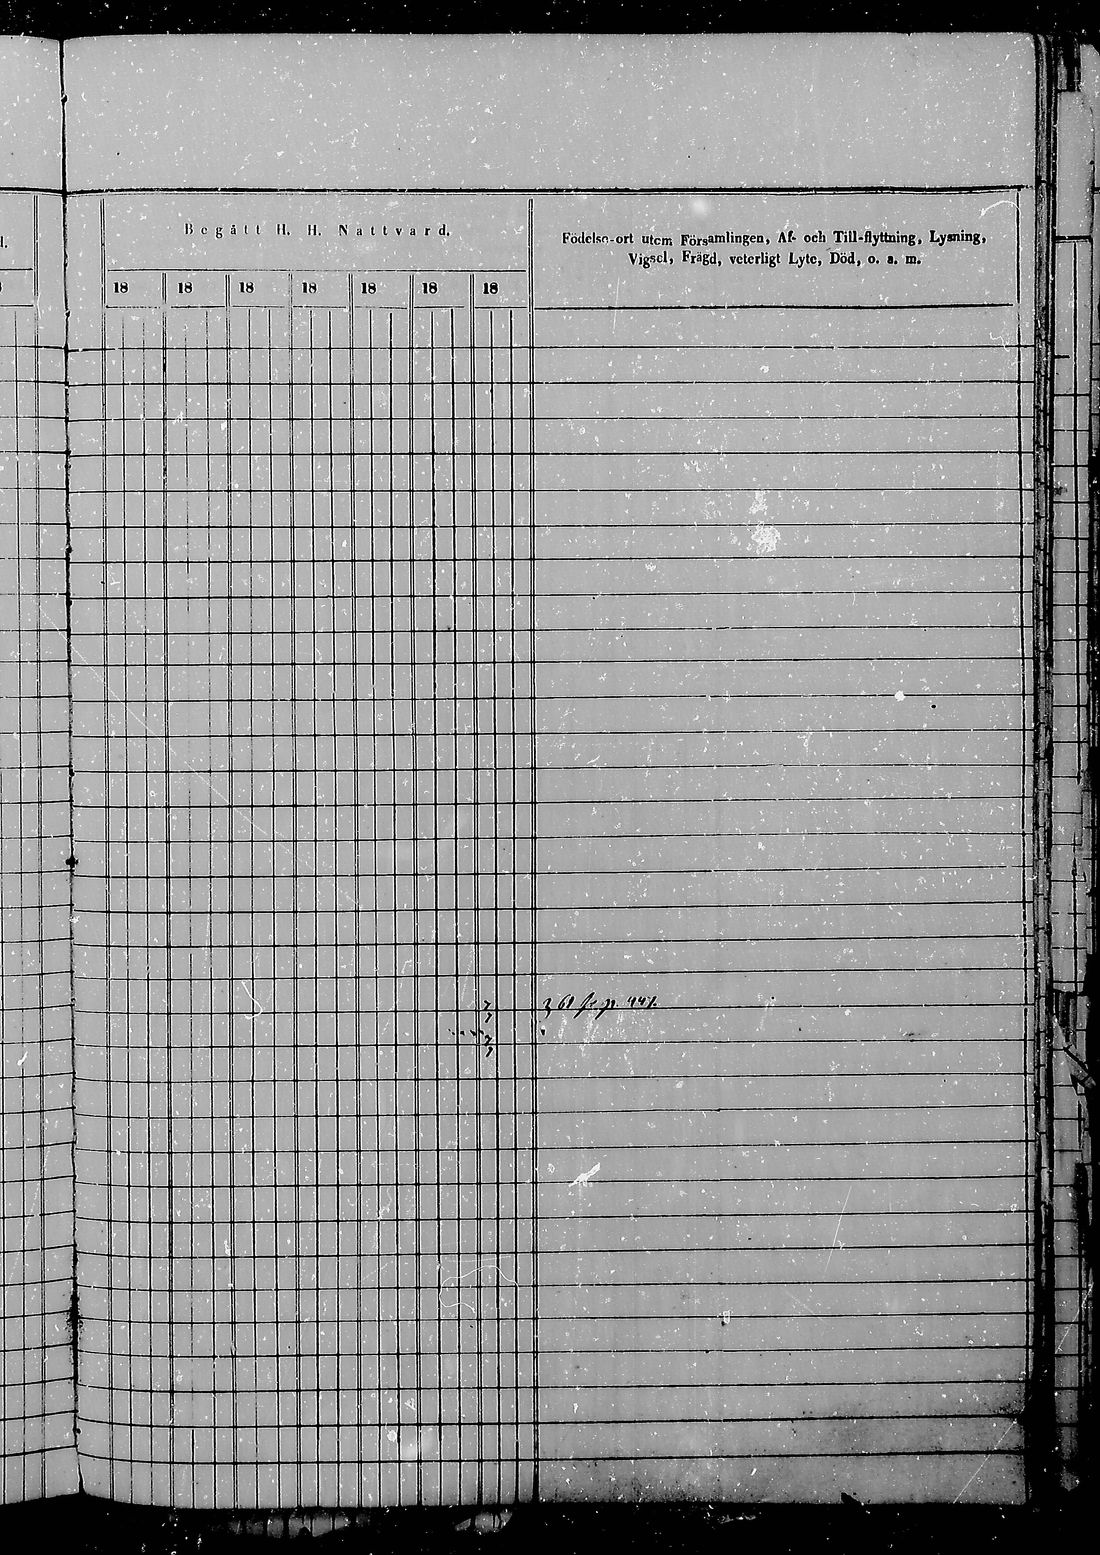 Begått H. H. Nattvard.
Födelse-ort utem Församlingen, Af- och Till-flyttning, Lysning,
Vigsel, Frägd, veterligt Lyte, Död, o. s. m.
18 18 18 18 18 18 18
7
7
7
7